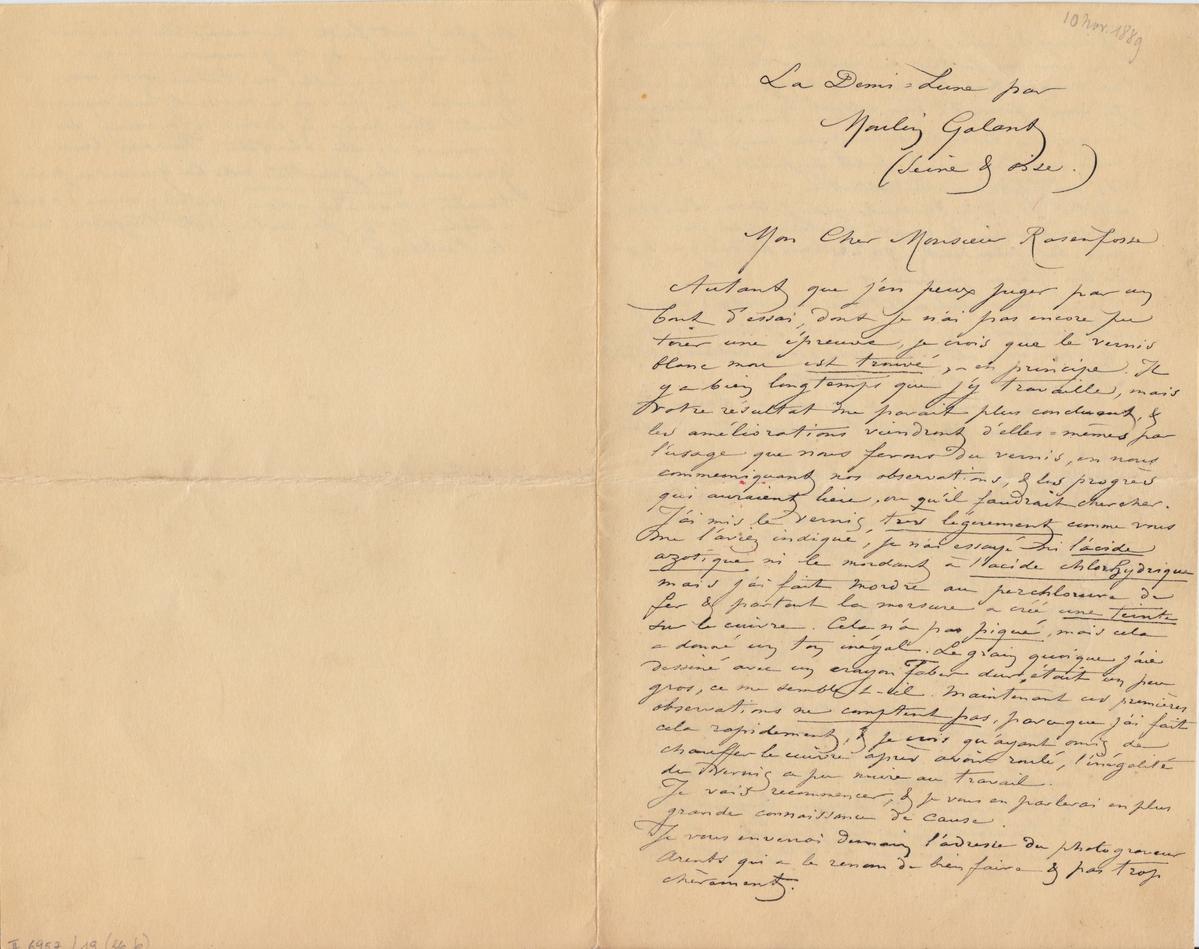 10 nov. 1889
La Demi-Lune par
Moulin Galant
(Seine & oise.)
Mon Cher Monsieur Rassenfosse
Autant que j'en peux juger par un
bout d'essai, dont je n'ai pas encore pu
tirer une épreuve, je crois que le vernis
blanc mou est trouvé, en principe. Il
y a bien longtemps que j'y travaille, mais
votre résultat me parait plus concluant, &
les améliorations viendront d'elles-mêmes par
l'usage que nous ferons du vernis, en nous
communiquant nos observations, & les progrès
qui auraient lieu, ou qu'il faudrait chercher.
J'ai mis le vernis très légèrement comme vous
me l'aviez indiqué, je n'ai essayé ni l'acide
azotique ni le mordant à l'acide chlorhydrique
mais j'ai fait mordre au perchlorure de
fer & partout la morsure a créé une teinte
sur le cuivre. Cela n'a pas piqué, mais cela
a donné un ton inégal. Le grain quoique j'aie
dessiné avec un crayon Faber dur, était un peu
gros, ce me semble-t-il. Maintenant ces premières
observations ne comptent pas, parceque j'ai fait
cela rapidement, & je crois qu'ayant omis de
chauffer le cuivre après avoir roulé, l'inégalité
du vernis a pu nuire au travail.
Je vais recommencer, & je vous en parlerai en plus
grande connaissance de cause.
Je vous enverrai demain l'adresse du photograveur
Arents qui a le renom de bien faire & pas trop
chèrement.
II 6957 / 19 (26 b)